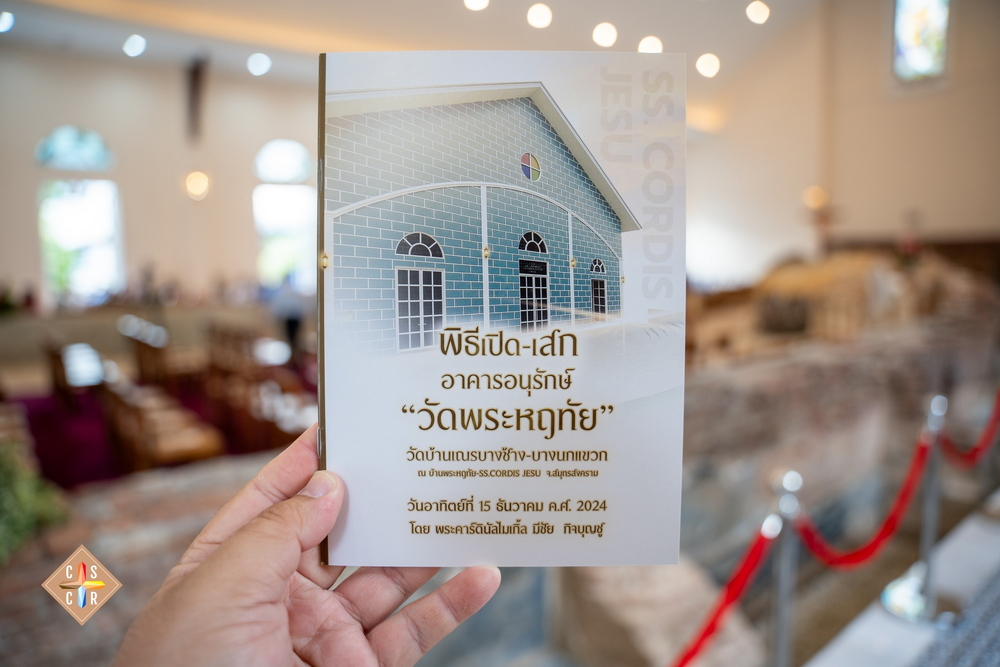 SS. CORDIS
JESU
พิธีเปิด-เสก
อาคารอนุรักษ์
“วัดพระหฤทัย”
วัดบ้านเณรบางช้าง-บางนกแขวก
ณ บ้านพระหฤทัย-SS.CORDIS JESU จ.สมุทรสงคราม
วันอาทิตย์ที่ 15 ธันวาคม ค.ศ. 2024
โดย พระคาร์ดินัลไมเกิ้ล มีชัย กิจบุญชู
C S
C R